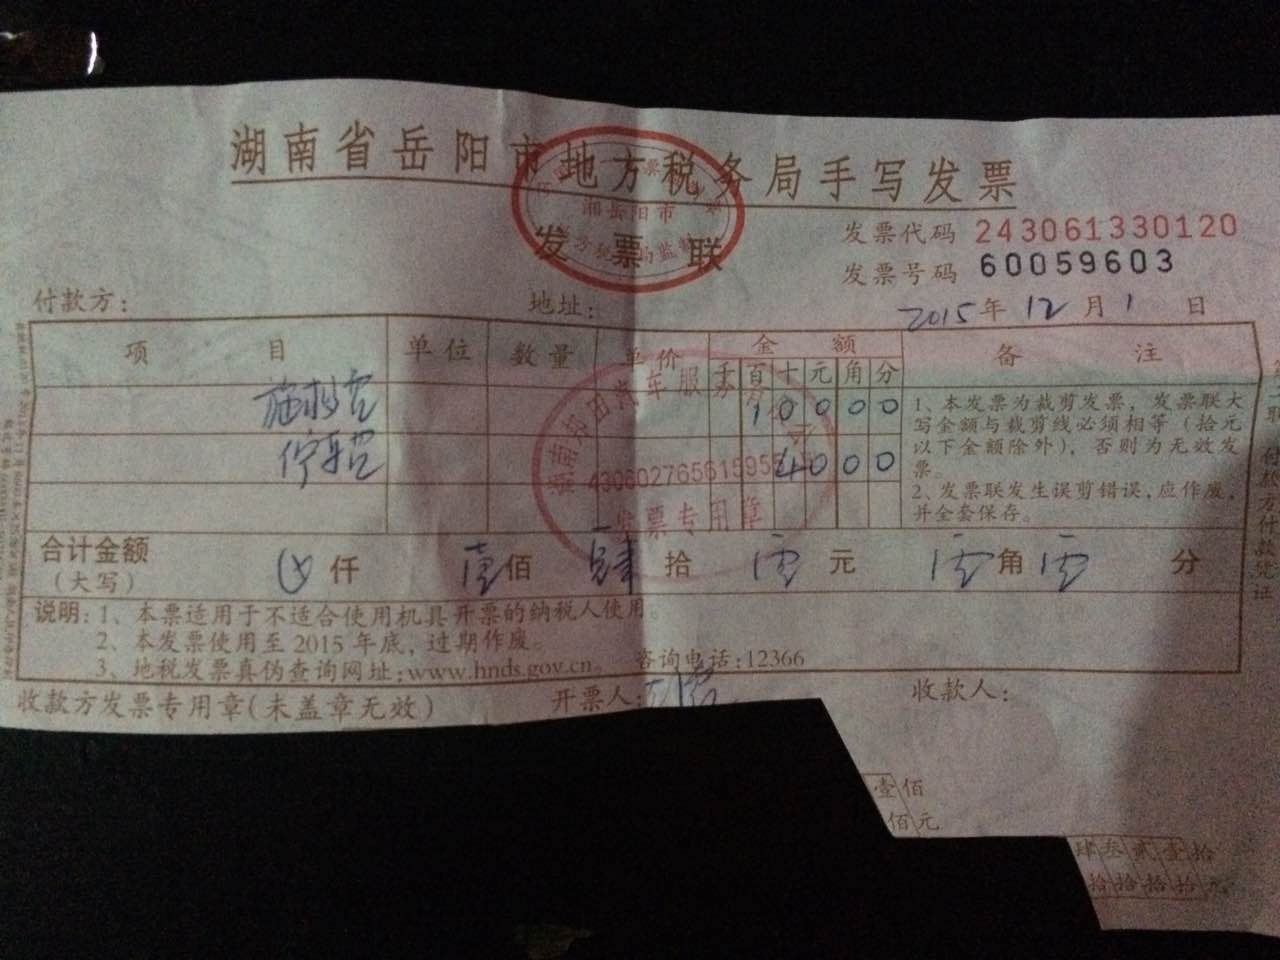 湖南省岳阳市地方税务局手写发票
发票联
湘岳阳市
发票代码 243061330120
发票号码 60059603
付款方: 地址: 2015年12月1日
项目 单位 数量 单价 金额 备注
千百十元角分
施救费 10000
停车费 4000
1、本发票为裁剪发票，发票联大
写金额与裁剪线必须相等（拾元
以下金额除外），否则为无效发
票。
2、发票联发生误剪错误，应作废，
并全套保存。
430602765615955
发票专用章
合计金额
（大写） 仟 壹佰 肆拾 零元 零角 零分
说明:1、本票适用于不适合使用机具开票的纳税人使用。
2、本发票使用至2015年底，过期作废。
3、地税发票真伪查询网址:www.hnds.gov.cn。 咨询电话:12366
收款方发票专用章(未盖章无效) 开票人: 收款人:
壹佰
佰元
肆叁贰壹拾
拾拾拾拾元